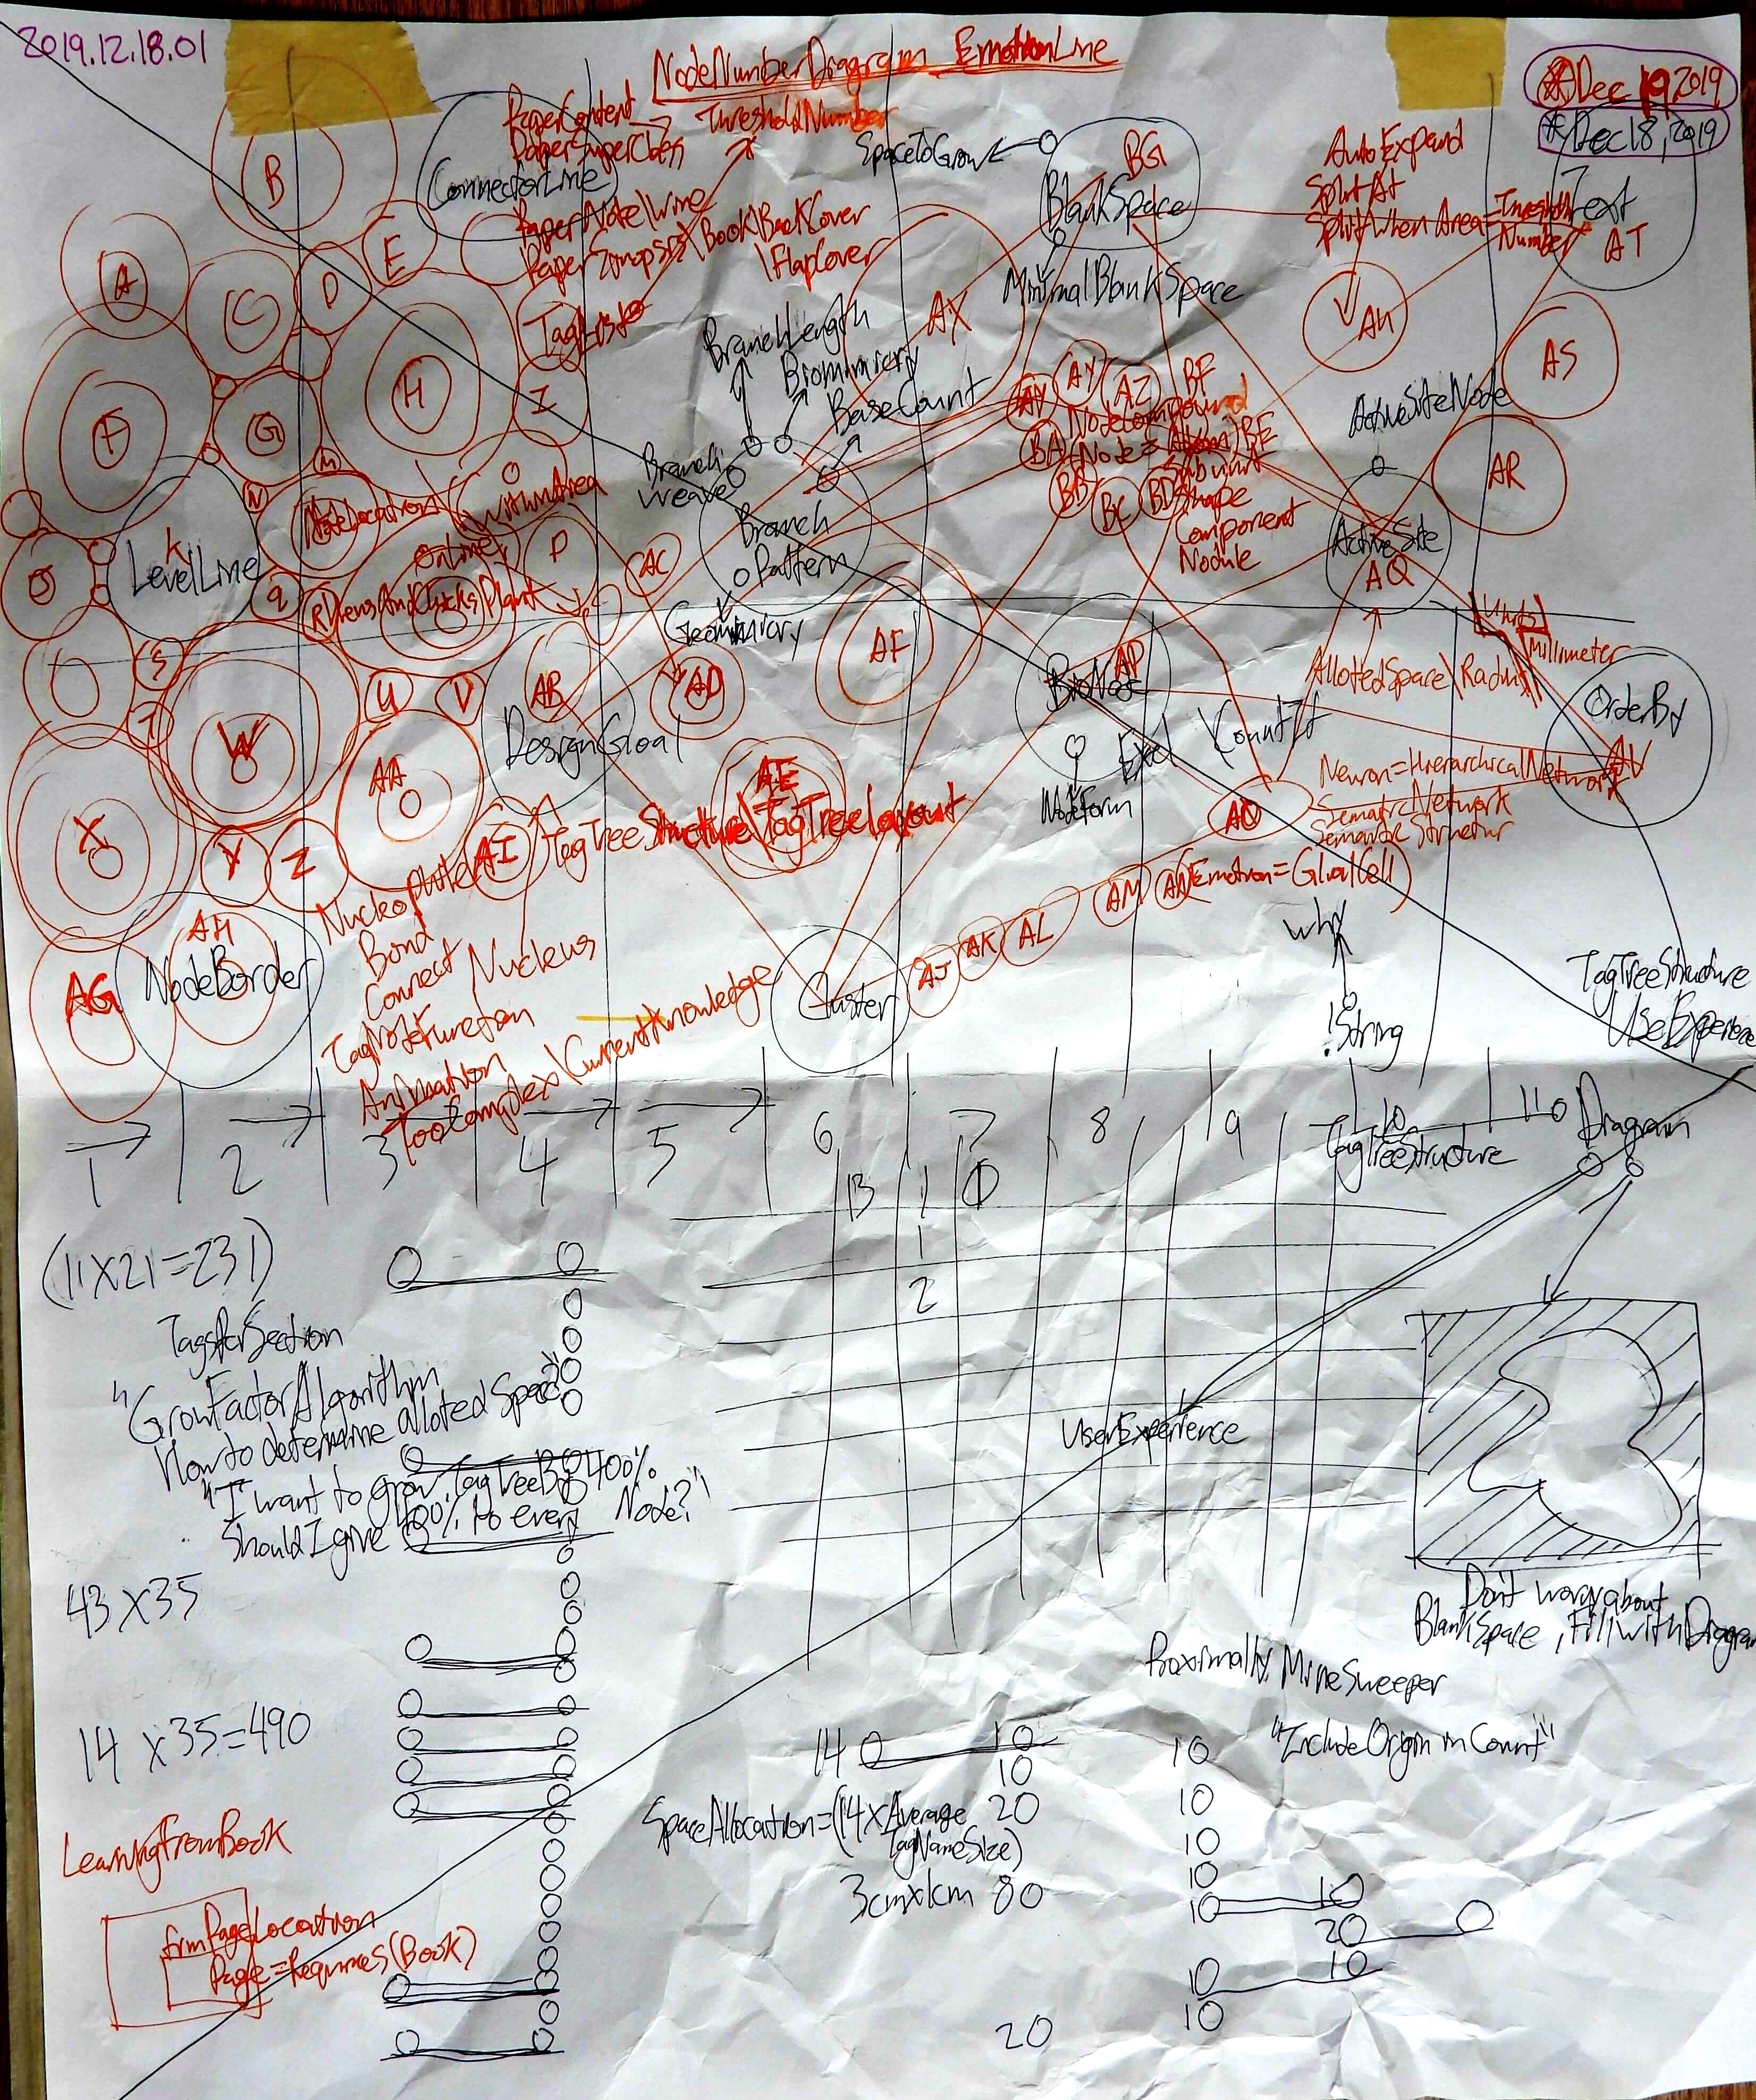 2019.12.18.01
NodeNumberDiagram EmotionLine
Dec 19 2019
*Dec 18, 2019
PaperContent
ThresholdNumber
PaperSuperClass
ConnectorLine
PaperNote\Wire
\Book\BackCover
\FlapCover
TagList
SpaceToGrow
BG
BlankSpace
MinimalBlankSpace
AutoExpand
SplitAt
SplitWhen Area=Threshold
Number
Text
AT
B
E
A
C
D
F
G
H
I
AX
BranchLength
Biomimicry
BaseCount
Branch
Weave
Branch
Pattern
Geomimicry
AY
AZ
BF
NodeCompound
BA
(Node=Atom)
BE
Subunit
BB
BC
BD
Shape
Component
Nodule
AH
AS
ActiveSiteNode
AR
ActiveSite
AQ
M
N
NodeLocation
WithinArea
OnLine
K
LevelLine
P
AC
Q
R
HensAndChicksPlant
S
T
U
V
W
AB
DesignGoal
AD
AF
AP
Units
Millimeter
AllotedSpace\Radius
OrderBy
AV
CountIt
Excel
NodeForm
Neuron=HierarchicalNetwork
SematicNetwork
AE
AA
X
Y
Z
AI
TagTreeStructure\TagTreeLayout
AG
AH
NodeBorder
Bond
Connect
Nucleus
Animation
TooComplex\CurrentKnowledge
Cluster
AJ
AK
AL
AM
AN
(Emotion=GlialCell)
why
!String
TagTreeStructure
UserExperience
1
2
3
4
5
6
7
8
9
10
11
TagTreeStructure
Diagram
13
1
1
2
(11x21=231)
TagsPerSection
"GrowFactorAlgorithm
How to determine alloted Space"
"I want to grow TagTreeBy 400%
Should I give 400% to every Node?"
UserExperience
43 x 35
Don't worry about
BlankSpace, Fill with Diagram
MineSweeper
14 x 35=490
"Include Origin in Count"
14
10
10
SpaceAllocation=(14 x Average
TagNameSize)
20
3cmx1cm
80
20
10
10
10
10
10
10
20
10
10
10
LearningFromBook
frmPageLocation
Page=Requires(Book)